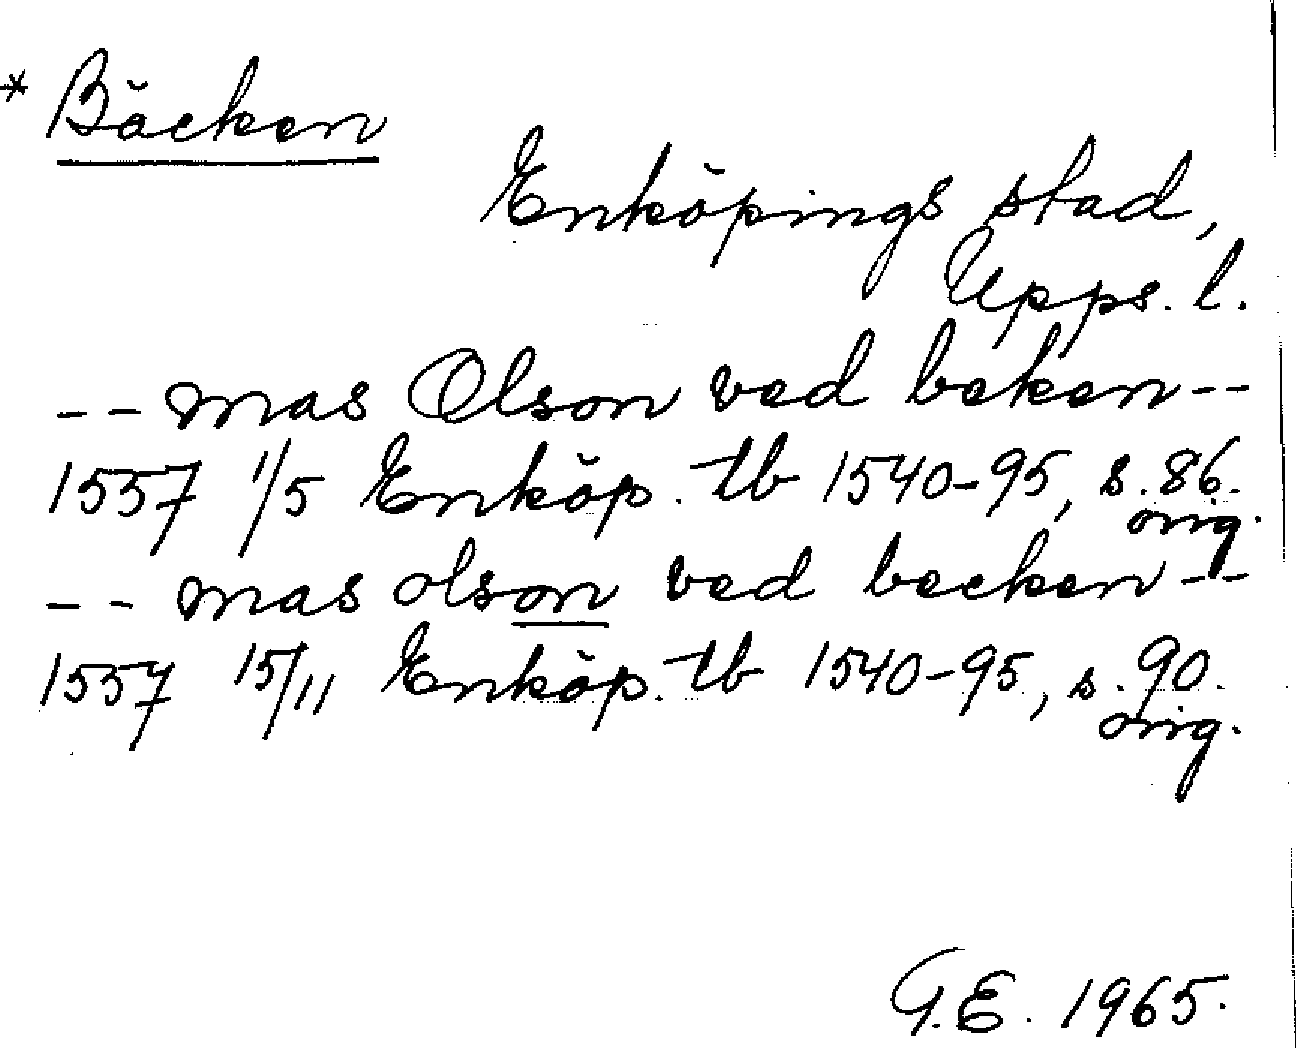 * Bäcken
Enköpings stad,
Upps. l.
-- mas Olson ved beken --
1557 1/5 Enköp. tb 1540-95, s. 86.
orig.
-- mas olson ved becken --
1557 15/11 Enköp. tb 1540-95, s. 90.
orig.
G.E. 1965.